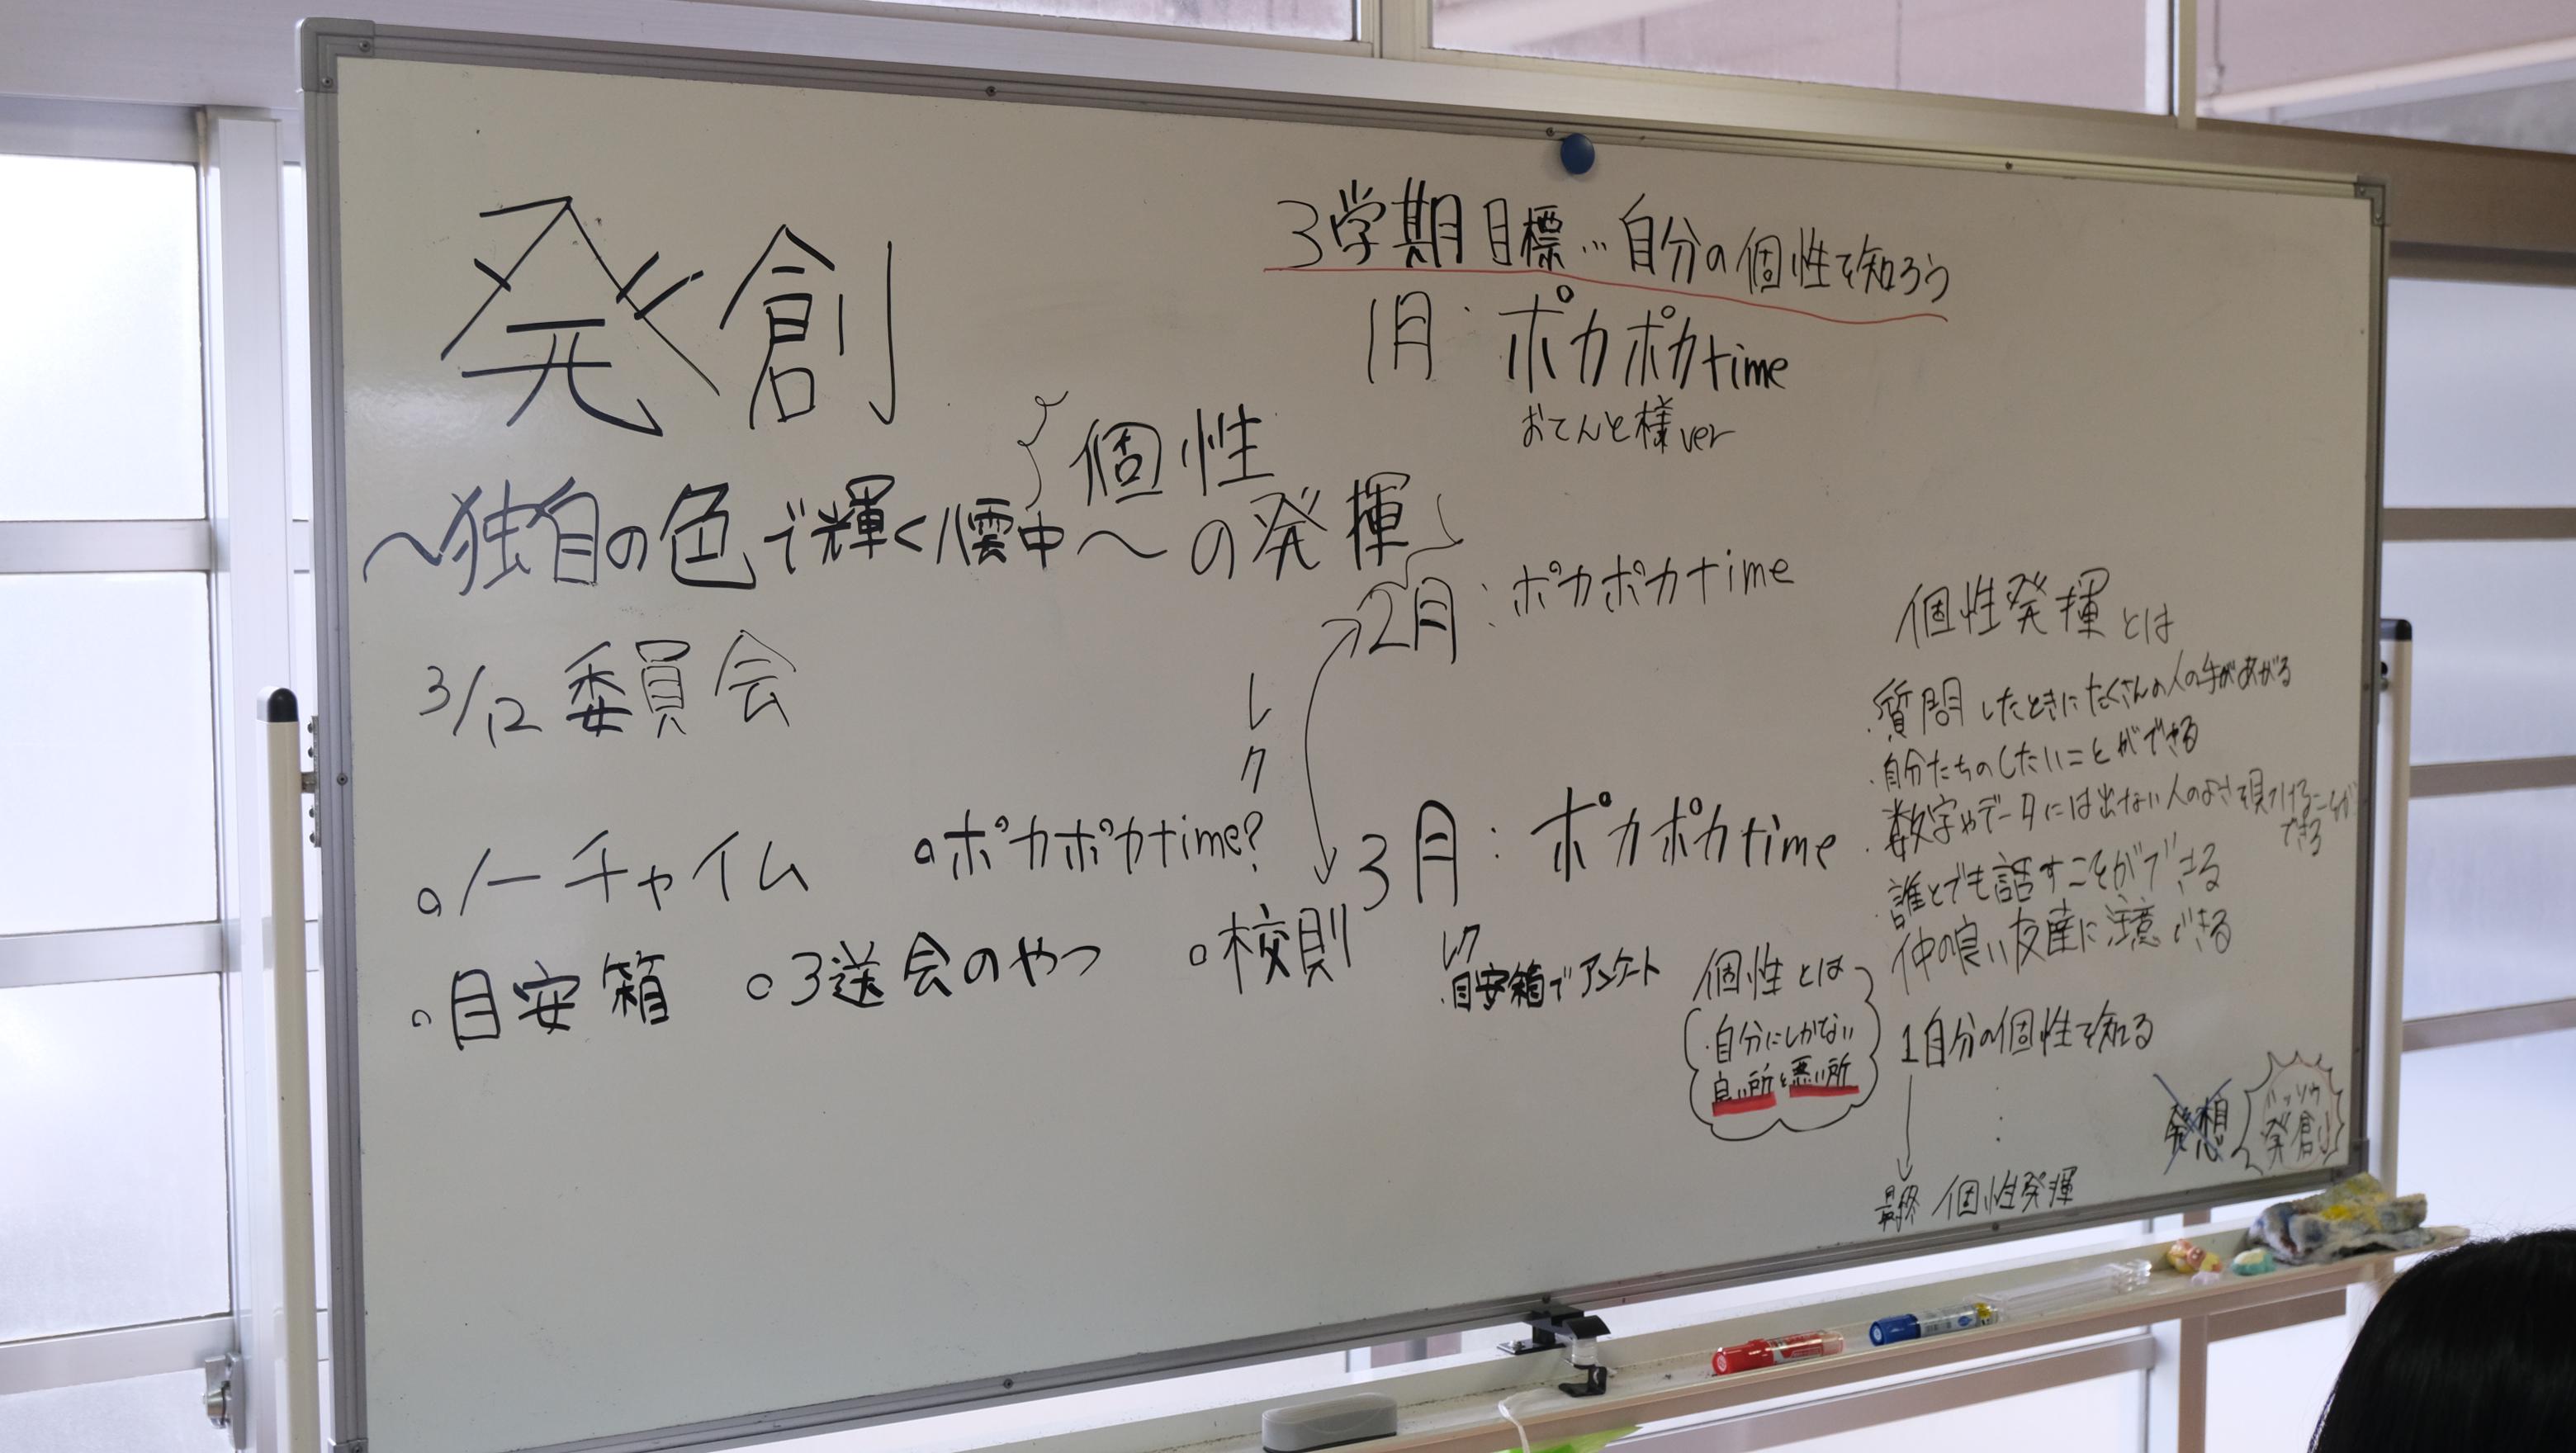 発創
～独自の色で輝く澐中～
個性
の発揮
3/12 委員会
ノーチャイム
ポカポカtime?
目安箱
3送会のやつ
校則
レク
3学期目標…自分の個性を知ろう
1月：ポカポカtime
おてんと様ver
2月：ポカポカtime
3月：ポカポカtime
レク
・目安箱でアンケート
個性とは
・自分にしかない
良い所と悪い所
個性発揮とは
・質問したときにたくさんの人の手があがる
・自分たちのしたいことができる
・数字やデータには出ない人のよさを見つけることが
できる
・誰とでも話すことができる
仲の良い友達に注意できる
1自分の個性を知る
最終 個性発揮
発想
ハッソウ
発創